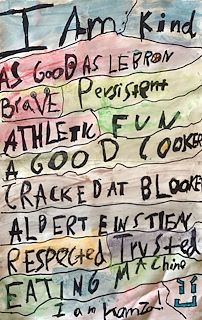 I Am Kind
AS GOOD AS LEBRON
BRAVE Persistent
ATHLETIC FUN
A GOOD COOKER
CRACKED AT BLOOKET
ALBERT EINSTIEN
RESPECTED Trusted
EATING MAChine
I am hamza!